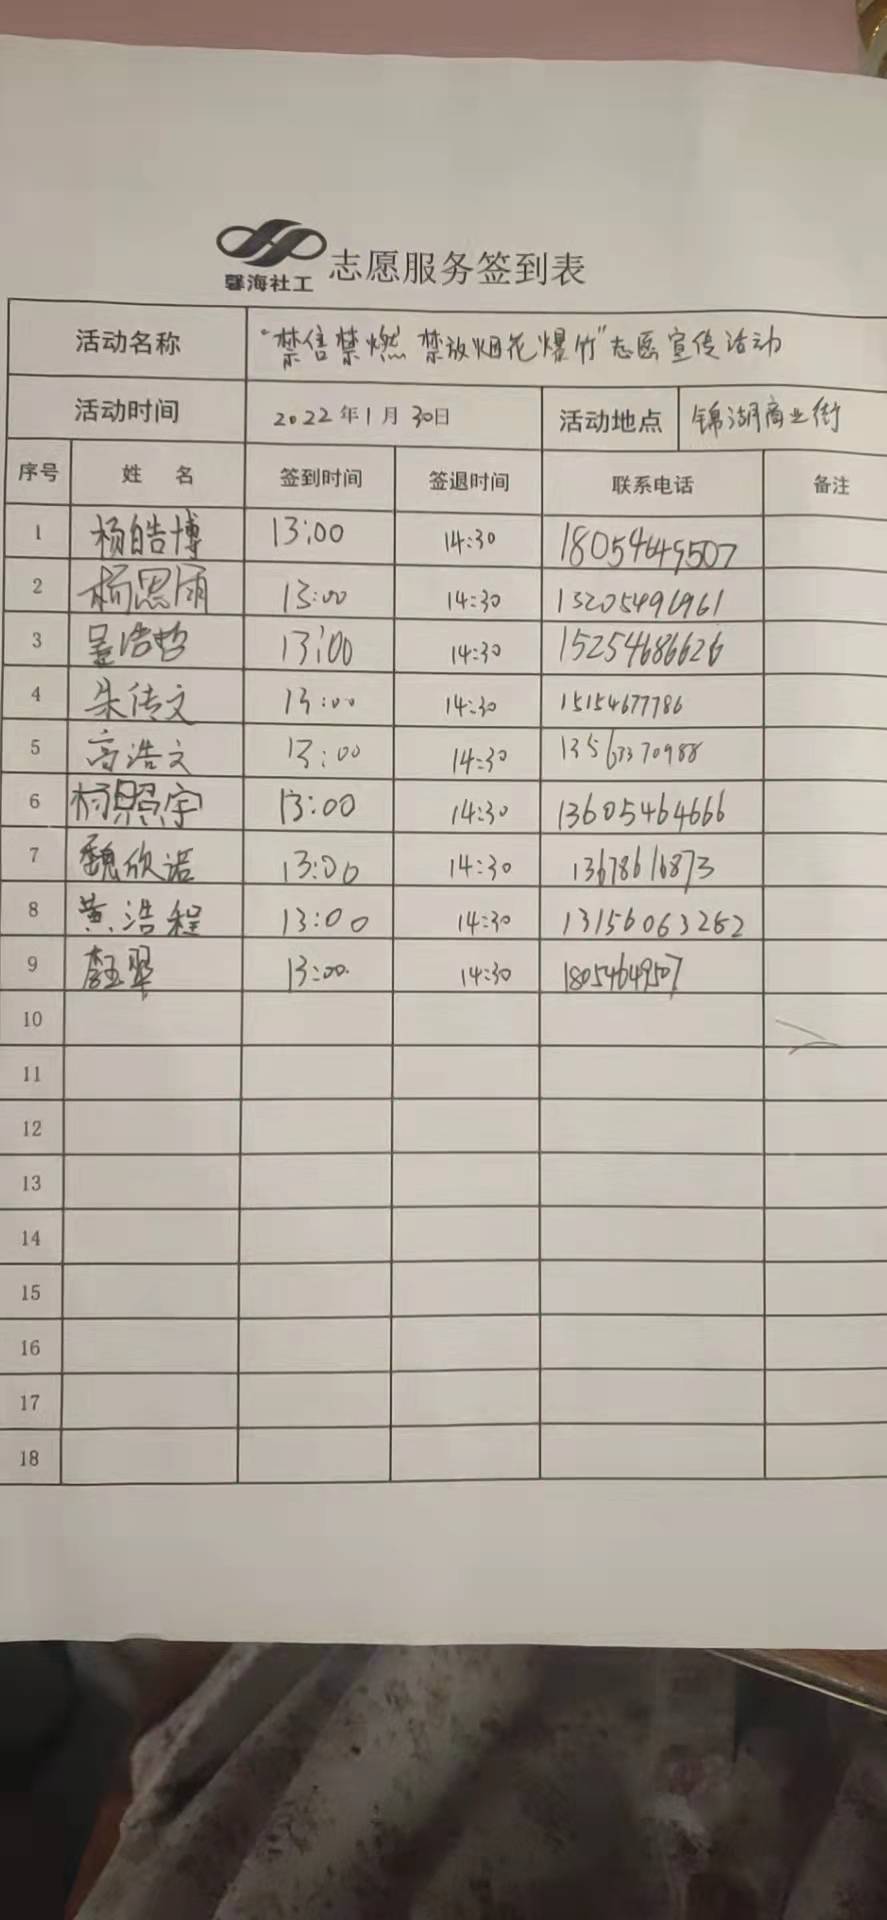 馨海社工 志愿服务签到表
活动名称 "禁售禁燃 禁放烟花爆竹"志愿宣传活动
活动时间 2022年1月30日 活动地点 锦湖商业街
序号 姓 名 签到时间 签退时间 联系电话 备注
1 杨皓博 13:00 14:30 18054649507
2 杨思雨 13:00 14:30
3 浩哲 13:00 14:30 15254686626
4 朱传文 13:00 14:30 15154677786
5 高浩文 13:00 14:30 13563370988
6 杨照宇 13:00 14:30 13605464666
7 魏欣诺 13:00 14:30 13678616873
8 黄浩程 13:00 14:30 13156063262
9 翠 13:00 14:30 18054649507
10
11
12
13
14
15
16
17
18